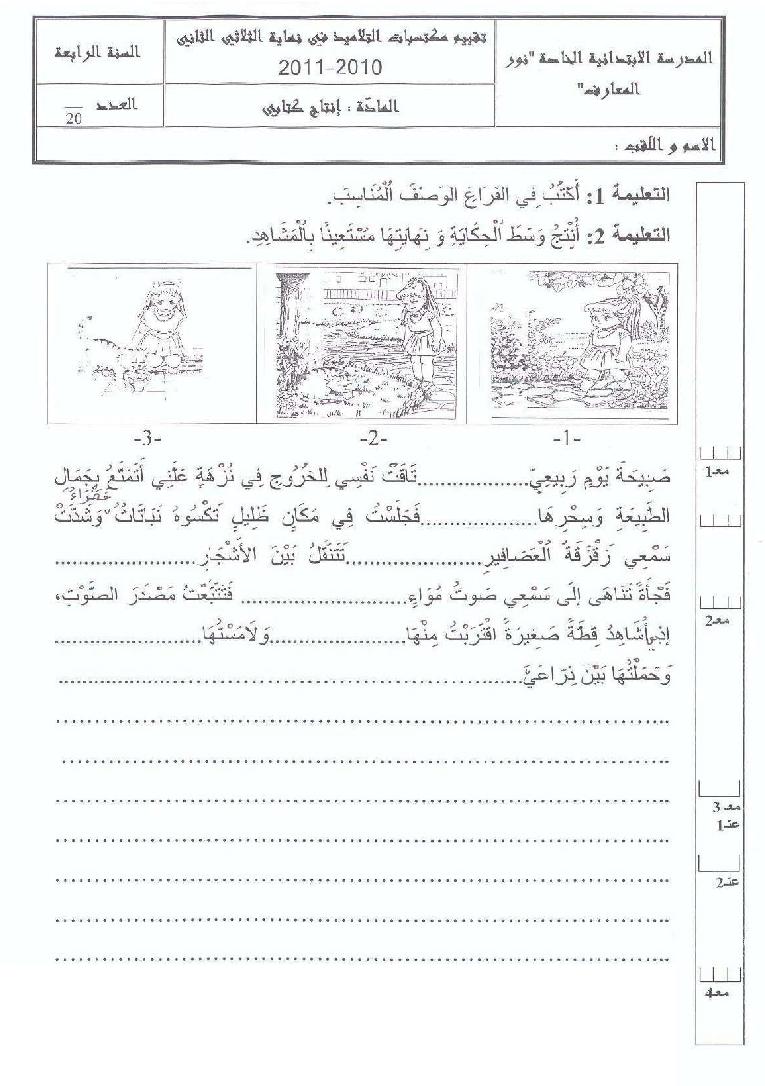 المدرسة الابتدائية الخاصة "نور المعارف"
تقييم مكتسبات التلاميذ في نهاية الثلاثي الثاني
2010-2011
السنة الرابعة
المادّة : إنتاج كتابي
العدد __
20
الاسم و اللّقب :
التعليمة 1: أَكْتُبُ فِي الفَرَاغِ الوَصْفَ ٱلْمُنَاسِبَ.
التعليمة 2: أُنْتِجُ وَسَطَ ٱلْحِكَايَةِ وَ نِهَايَتِهَا مُسْتَعِينًا بِٱلْمَشَاهِدِ.
-1-
-2-
-3-
صَبِيحَةَ يَوْمٍ رَبِيعِيٍّ..................تَاقَتْ نَفْسِي لِلْخُرُوجِ فِي نُزْهَةٍ عَلَّنِي أَتَمَتَّعُ بِجَمَالِ
الطَّبِيعَةِ وَسِحْرِهَا...................فَجَلَسْتُ فِي مَكَانٍ ظَلِيلٍ تَكْسُوهُ نَبَاتَاتٌ خَضْرَاءُ وَشَدَّتْ
سَمْعِي زَقْزَقَةُ ٱلْعَصَافِيرِ......................تَتَنَقَّلُ بَيْنَ الأَشْجَارِ.......................
فَجْأَةً تَنَاهَى إِلَى سَمْعِي صَوْتُ مُوَاءٍ...................... فَتَتَبَّعْتُ مَصْدَرَ الصَّوْتِ،
إِذْ بِي أُشَاهِدُ قِطَّةً صَغِيرَةً اقْتَرَبْتُ مِنْهَا......................وَلاَمَسْتُهَا.......................
وَحَمَلْتُهَا بَيْنَ ذِرَاعَيَّ......................................................................
معـ1
معـ2
معـ 3
عدـ1
عدـ2
معـ4